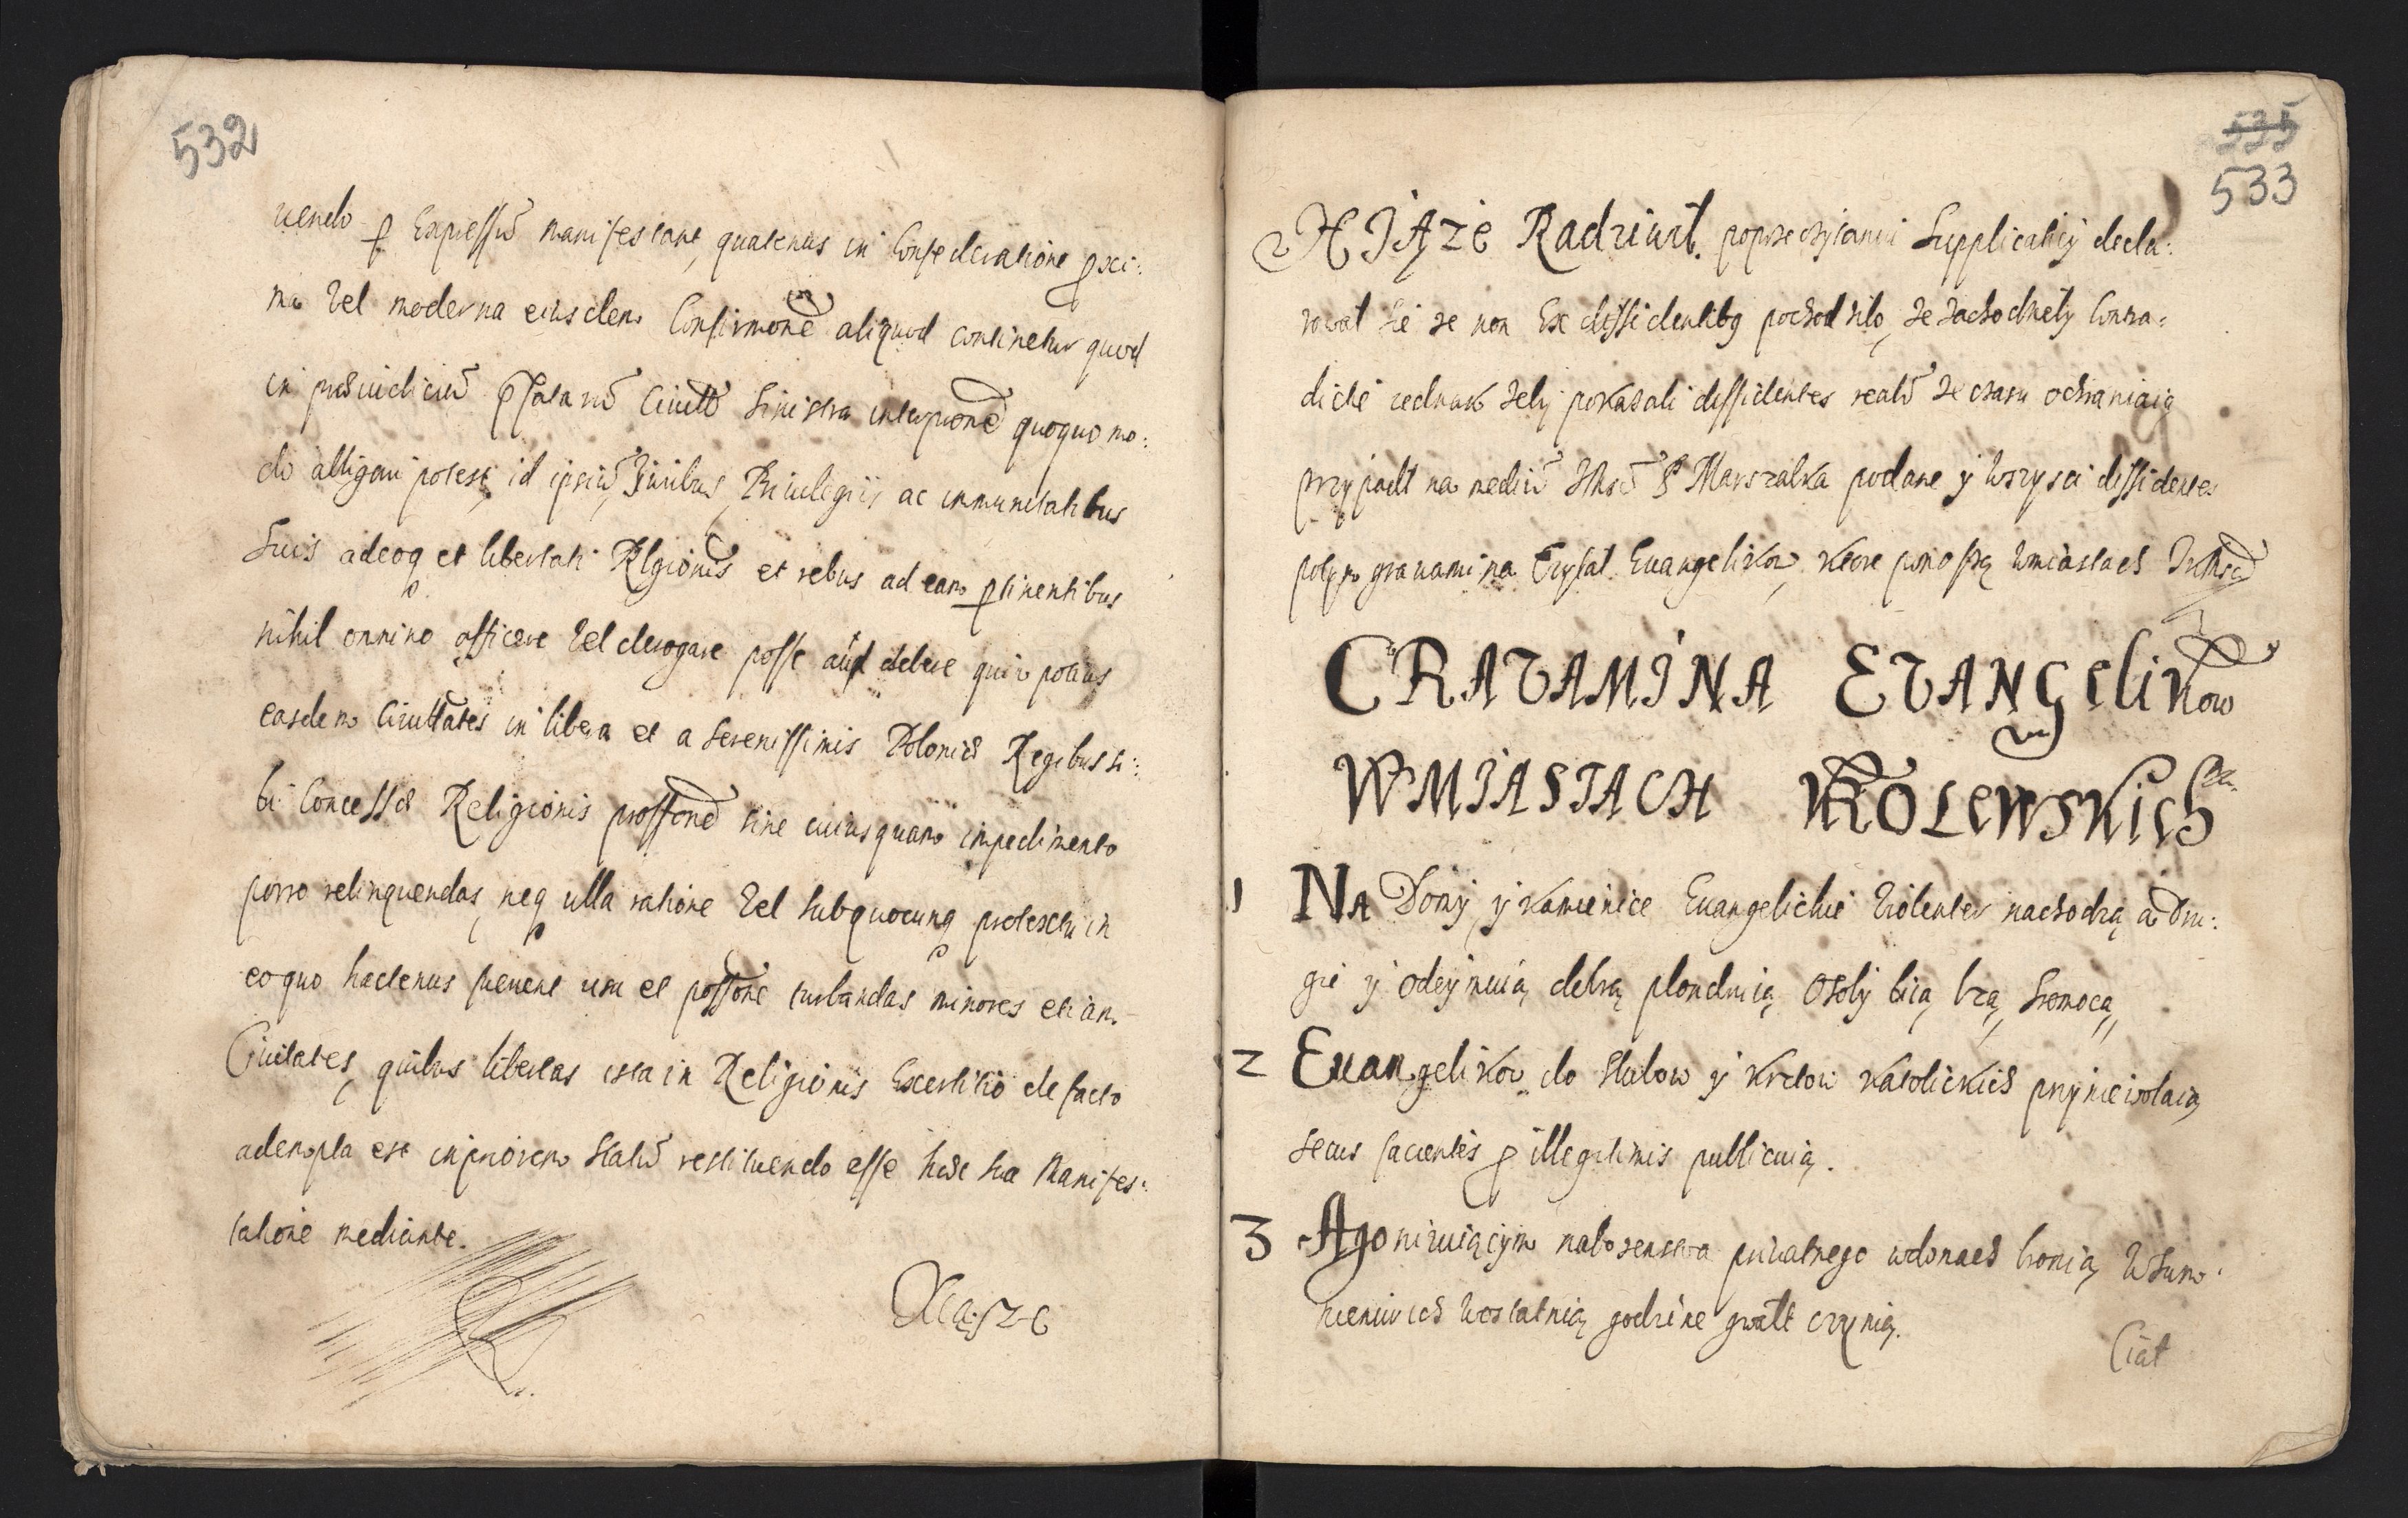 532
uendo p Expressū manifestant, quatenus in Confederatione proxi:
ma vel moderna eiusdem Confirmone aliquod continetur quod
in praeiudiciū pfatarū Ciuittū sinistra interprone quoquo mo:
do alligari potest, id ipsū Juribus, Priuilegiis ac immunitatibus
Suis adeoq et libertati Rlgionis et rebus ad eam ptinentibus
nihil omnino officere vel derogare posse aut debere quin potius
easdem Ciuittates in libera et a Serenissimis Poloniae Regibus si:
bi Concessa Religionis proffone sine cuiusquam impedimento
porro relinquendas, neq ulla ratione vel sub quocunq praetextu in
eo quo hactenus fuerunt usu et possone turbandas minores etiam
Ciuitates, quibus libertas ista in Religionis Exercitio de facto
adempta est in priorem Statū restituendo esse hac sua Manifes:
tatione mediante.
Xiąże
535
533
XIĄże Radziwił. po przeczytaniu Supplicatiy decla:
rował się że non Ex dissidentibq pochodziło, że zachodziły Contra:
dictie iednak żeby pokazali dissidentes realū że czasu ochraniaią
przypadł na mediū Jhmści P Marszałka podane y wszysci dissidentes
potym grauamina Czytał Euangelikow, ktore ponoszą w miastach Jkmści
GRAVAMINA EVANgelikow
W MIASTACH KROLEWSKich
1 NA Domy y kamienice Euangelickie violenter nachodzą a dru:
gie y odeymuią, dobrą plondruią Osoby biią, lżą, sromocą,
2 Euangelikow do Slubow y Krztow Katolickich przyniewolaią,
secus facientes p illegitimis publicuią.
3 Agonizuiącym nabożenstwa priuatnego w domach bronią, W Sum:
nieniu ich w ostatnią godzine gwałt czynią.
Ciał